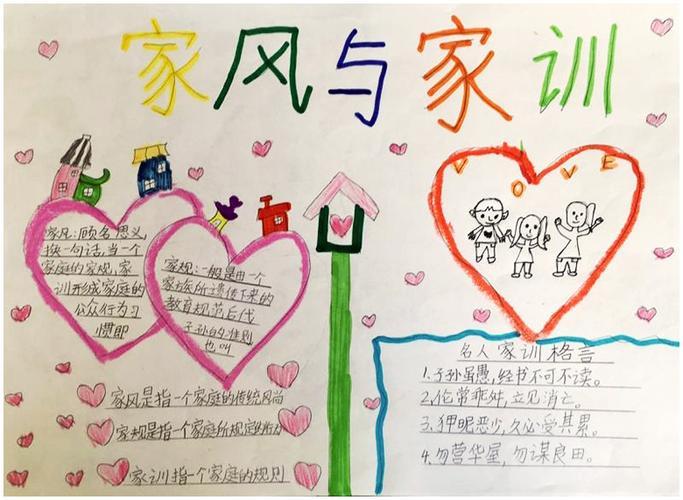 家风与家训
家风:顾名思义,
换一句话,当一个
家庭的家规,家
训形成家庭的
公众行为习
惯即
家规:一般是由一个
家族所遗传下来的
教育规范后代
子孙的准则
也叫
VOVE
家风是指一个家庭的传统风尚
家规是指一个家庭所规定的行为
家训指一个家庭的规则
名人家训格言
1.子孙虽愚,经书不可不读。
2.伦常乖舛,立见消亡。
3.狎昵恶少,久必受其累。
4.勿营华屋,勿谋良田。